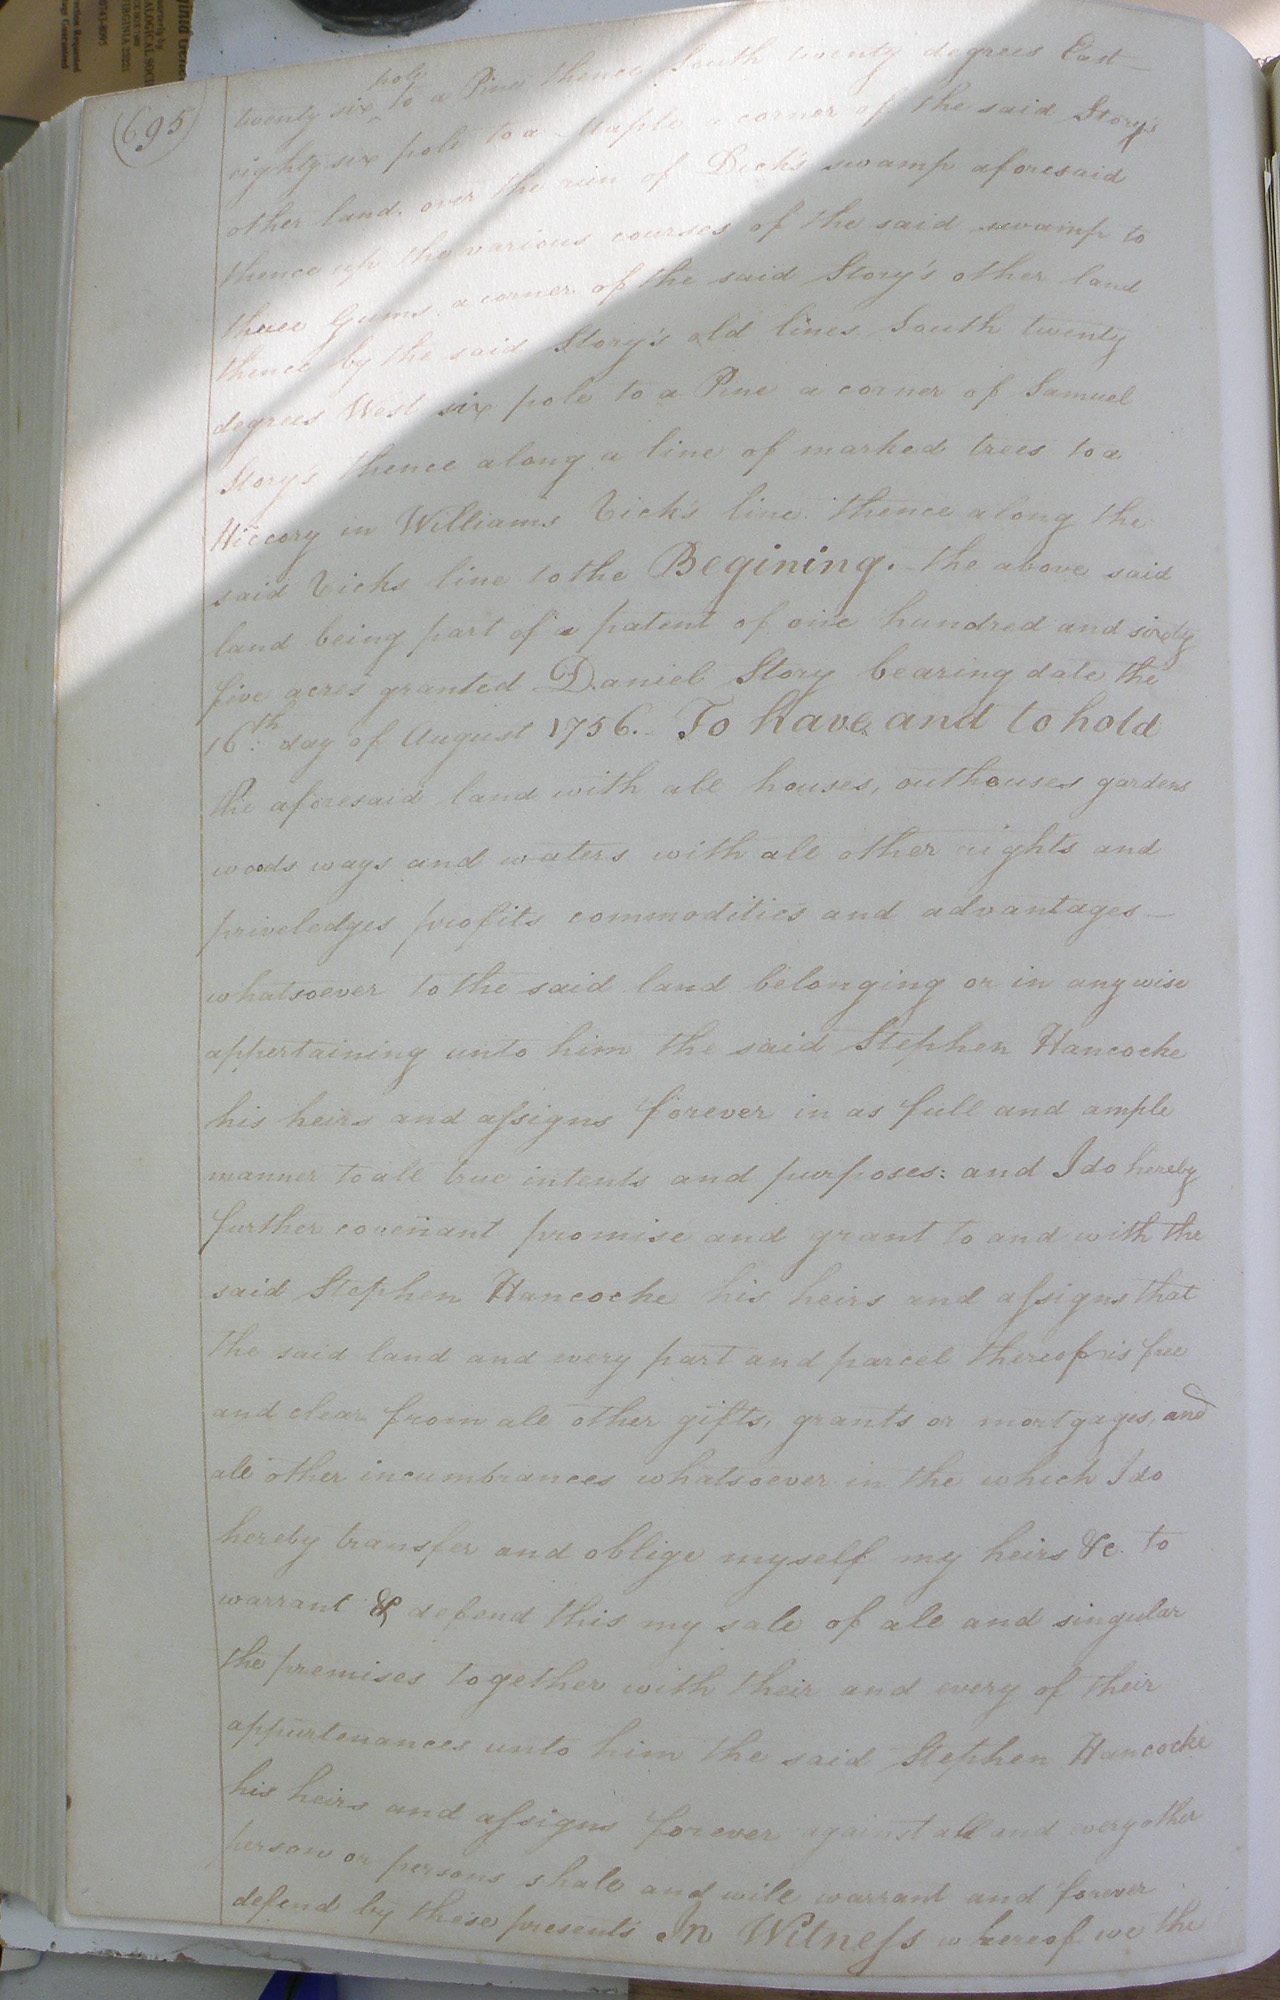 (695)
twenty six pole to a Pine thence South twenty degrees East
eighty six pole to a Maple a corner of the said Story's
other land. over the run of Dick's swamp aforesaid
thence up the various courses of the said swamp to
three Gums a corner of the said Story's other land
thence by the said Story's old lines South twenty
degrees West six pole to a Pine a corner of Samuel
Story's thence along a line of marked trees to a
Hiccory in Williams Vick's line thence along the
said Vicks line to the Begining. the above said
land being part of a patent of one hundred and sixty
five acres granted Daniel Story bearing date the
16th: day of August 1756. To have and to hold
the aforesaid land with all houses, outhouses gardens
woods ways and waters with all other rights and
priveledges profits commodities and advantages
whatsoever to the said land belonging or in any wise
appertaining unto him the said Stephen Hancocke
his heirs and assigns forever in as full and ample
manner to all true intents and purposes: and I do hereby
further covenant promise and grant to and with the
said Stephen Hancocke his heirs and assigns that
the said land and every part and parcel thereof is free
and clear from all other gifts, grants or mortgages, and
all other incumbrances whatsoever in the which I do
hereby transfer and oblige myself my heirs &c. to
warrant & defend this my sale of all and singular
the premises together with their and every of their
appurtenances unto him the said Stephen Hancocke
his heirs and assigns forever against all and every other
person or persons shall and will warrant and forever
defend by these presents In Witness whereof we the